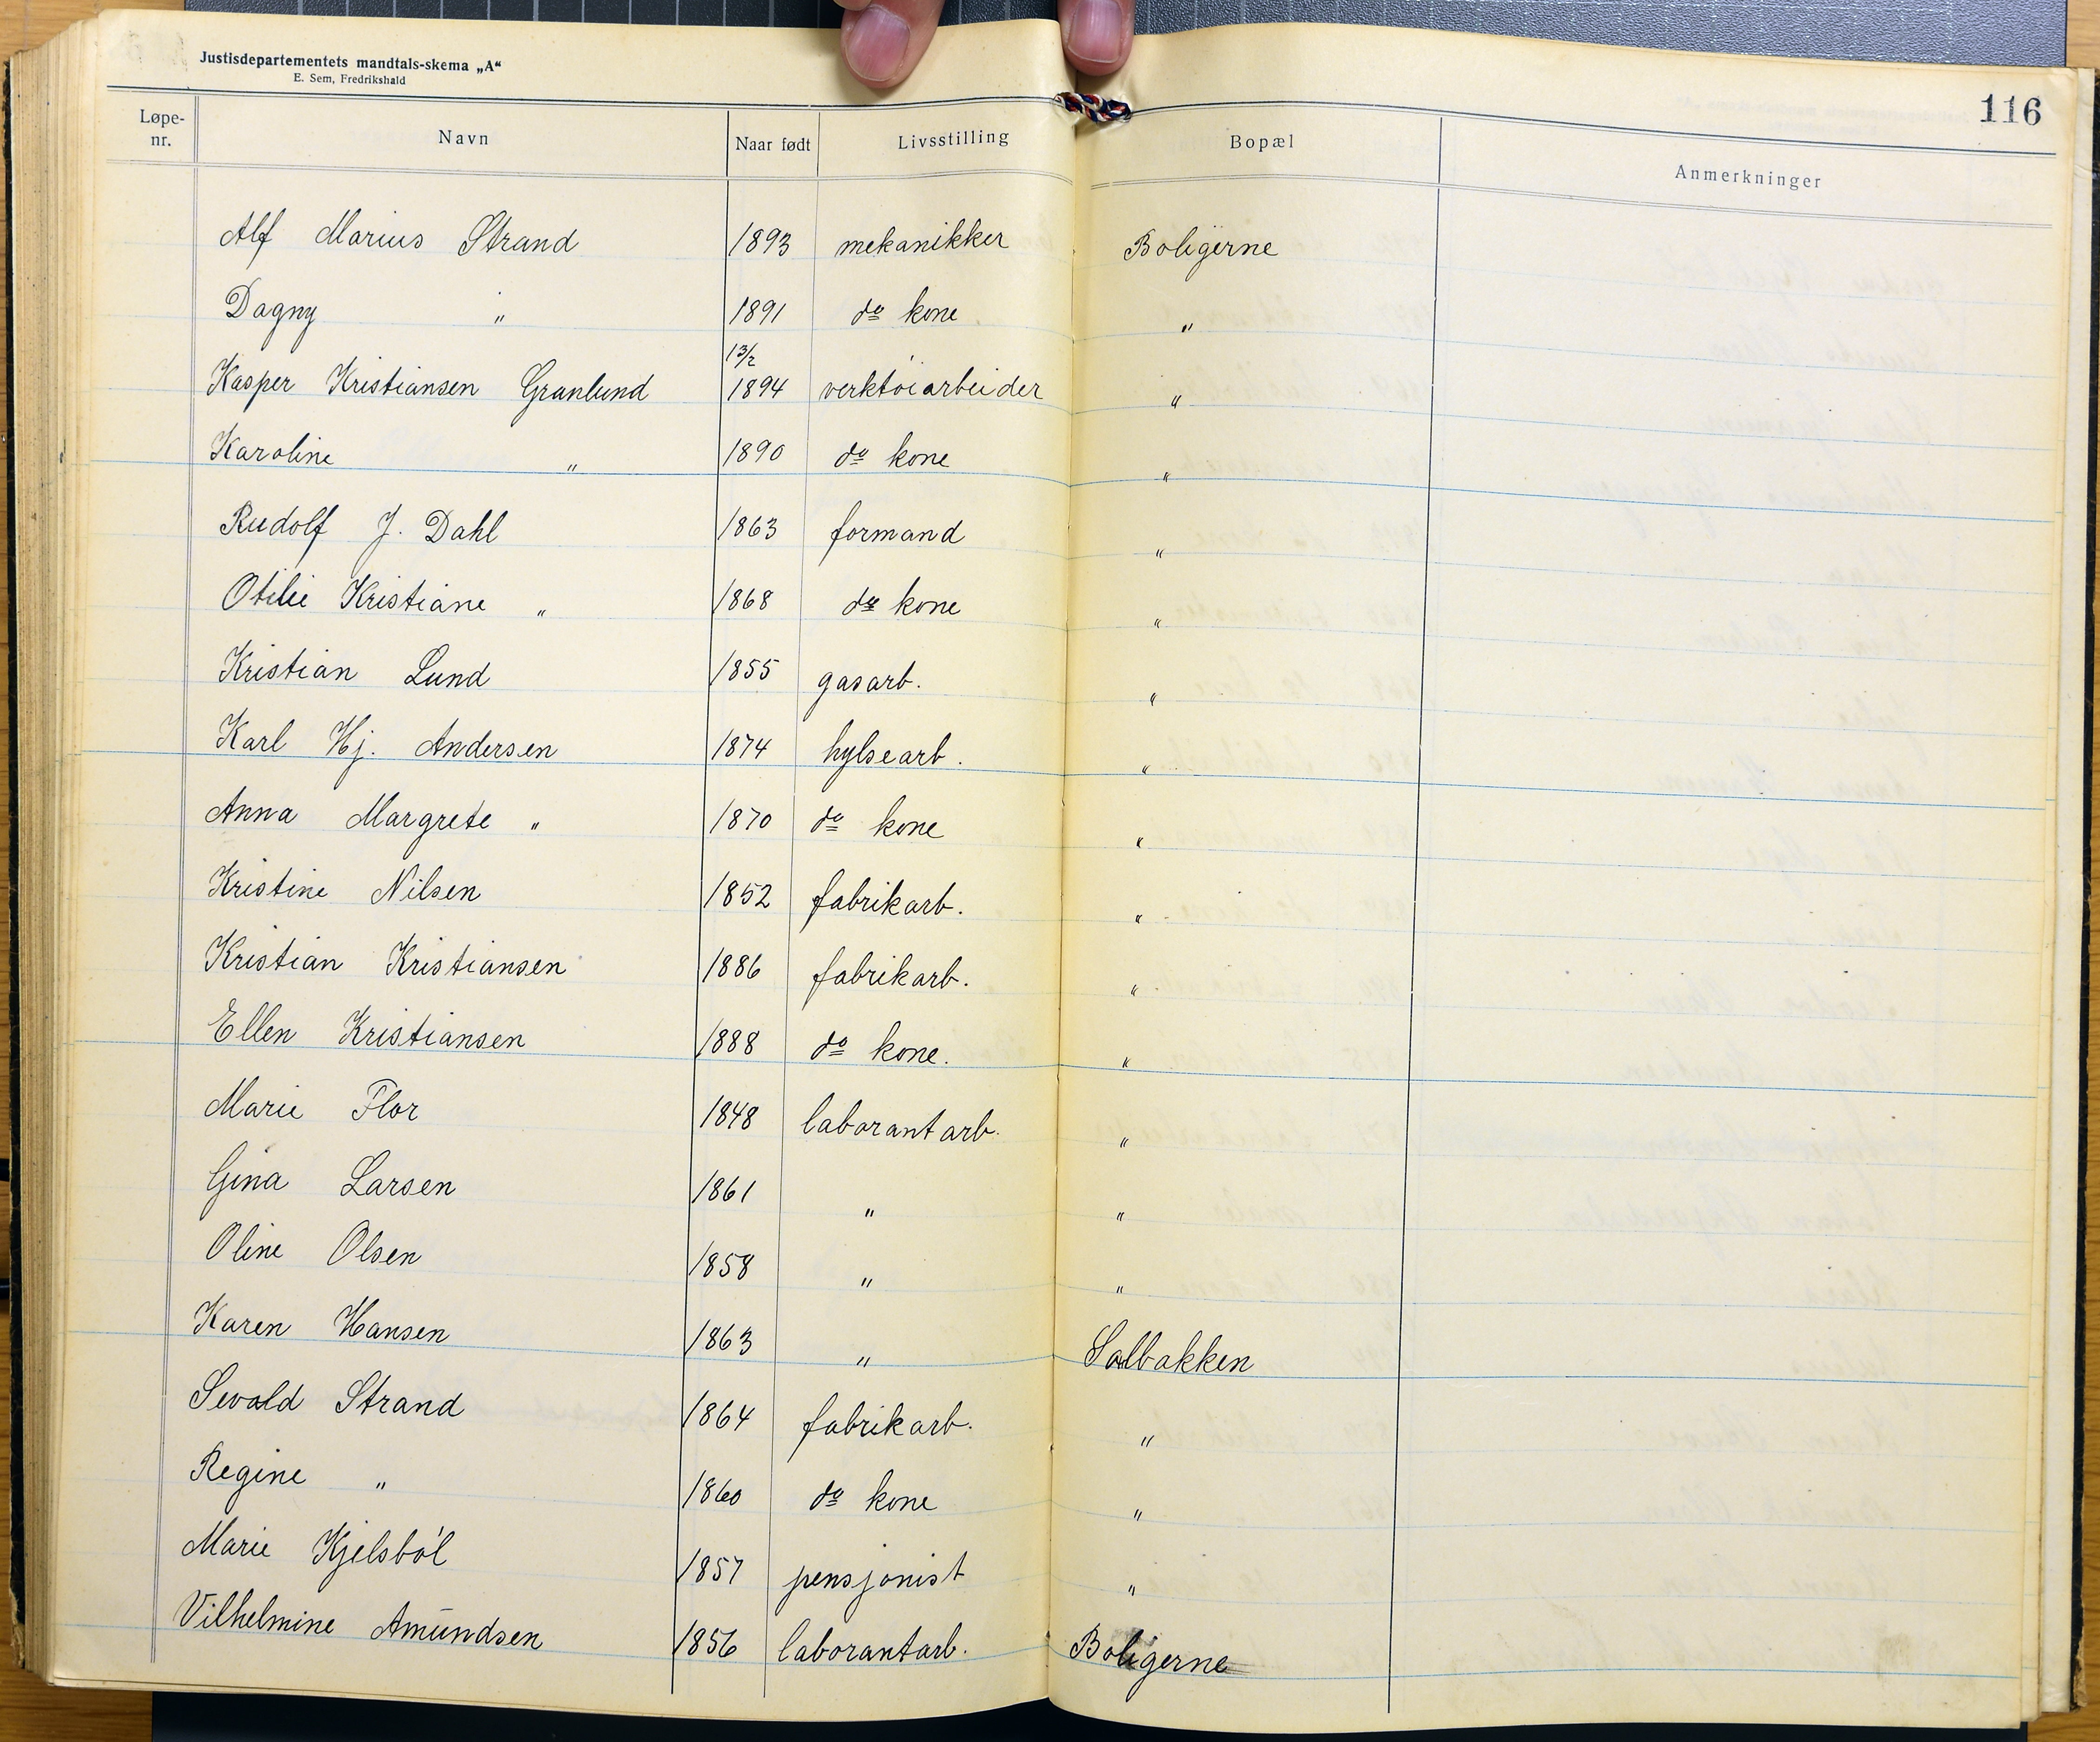 Justisdepartementets mandtals-skema „A“
E. Sem, Fredrikshald
116
Løpe-nr. Navn Naar født Livsstilling Bopæl Anmerkninger
Alf Marius Strand 1893 mekanikker Boligerne
Dagny " 1891 do kone "
Kasper Kristiansen Granlund 13/2 1894 verktöiarbeider "
Karoline " 1890 do kone "
Rudolf J. Dahl 1863 formand "
Otilie Kristiane " 1868 do kone "
Kristian Lund 1855 gasarb. "
Karl Hj. Andersen 1874 hylsearb. "
Anna Margrete " 1870 do kone "
Kristine Nilsen 1852 fabrikarb. "
Kristian Kristiansen 1886 fabrikarb. "
Ellen Kristiansen 1888 do kone. "
Marie Flor 1848 laborantarb. "
Gina Larsen 1861 " "
Oline Olsen 1858 " "
Karen Hansen 1863 " Solbakken
Sevald Strand 1864 fabrikarb. "
Regine " 1860 do kone "
Marie Kjelsböl 1857 pensjonist "
Vilhelmine Amundsen 1856 laborantarb. Boligerne